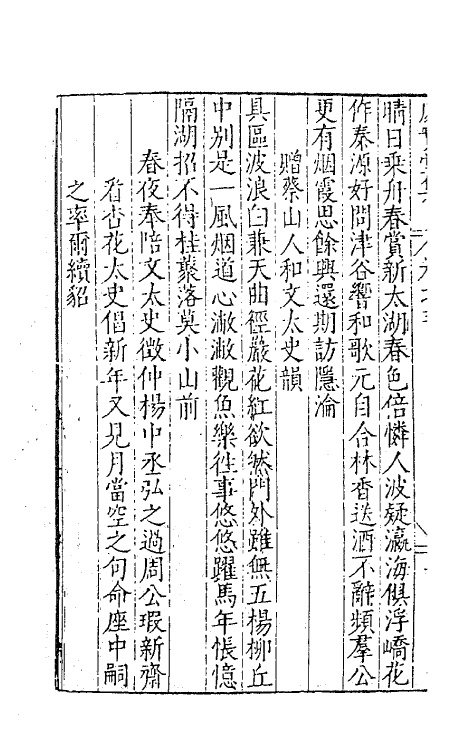 晴日乗舟春賞新太湖春色倍憐人波疑瀛海俱浮嶠花
作秦源好問津谷響和歌元自合林香送酒不辭頻羣公
更有烟霞思餘興還期訪隱淪
贈蔡山人和文太史韻
具區波浪白兼天曲徑巖花紅欲然門外雖無五楊柳丘
中别是一風烟道心澉澉觀魚樂徃事悠悠躍馬年悵憶
隔湖招不得桂藂落莫小山前
春夜奉陪文太史徴仲楊中丞弘之過周公瑕新齋
看杏花太史倡新年又見月當空之句命座中嗣
之率爾續貂